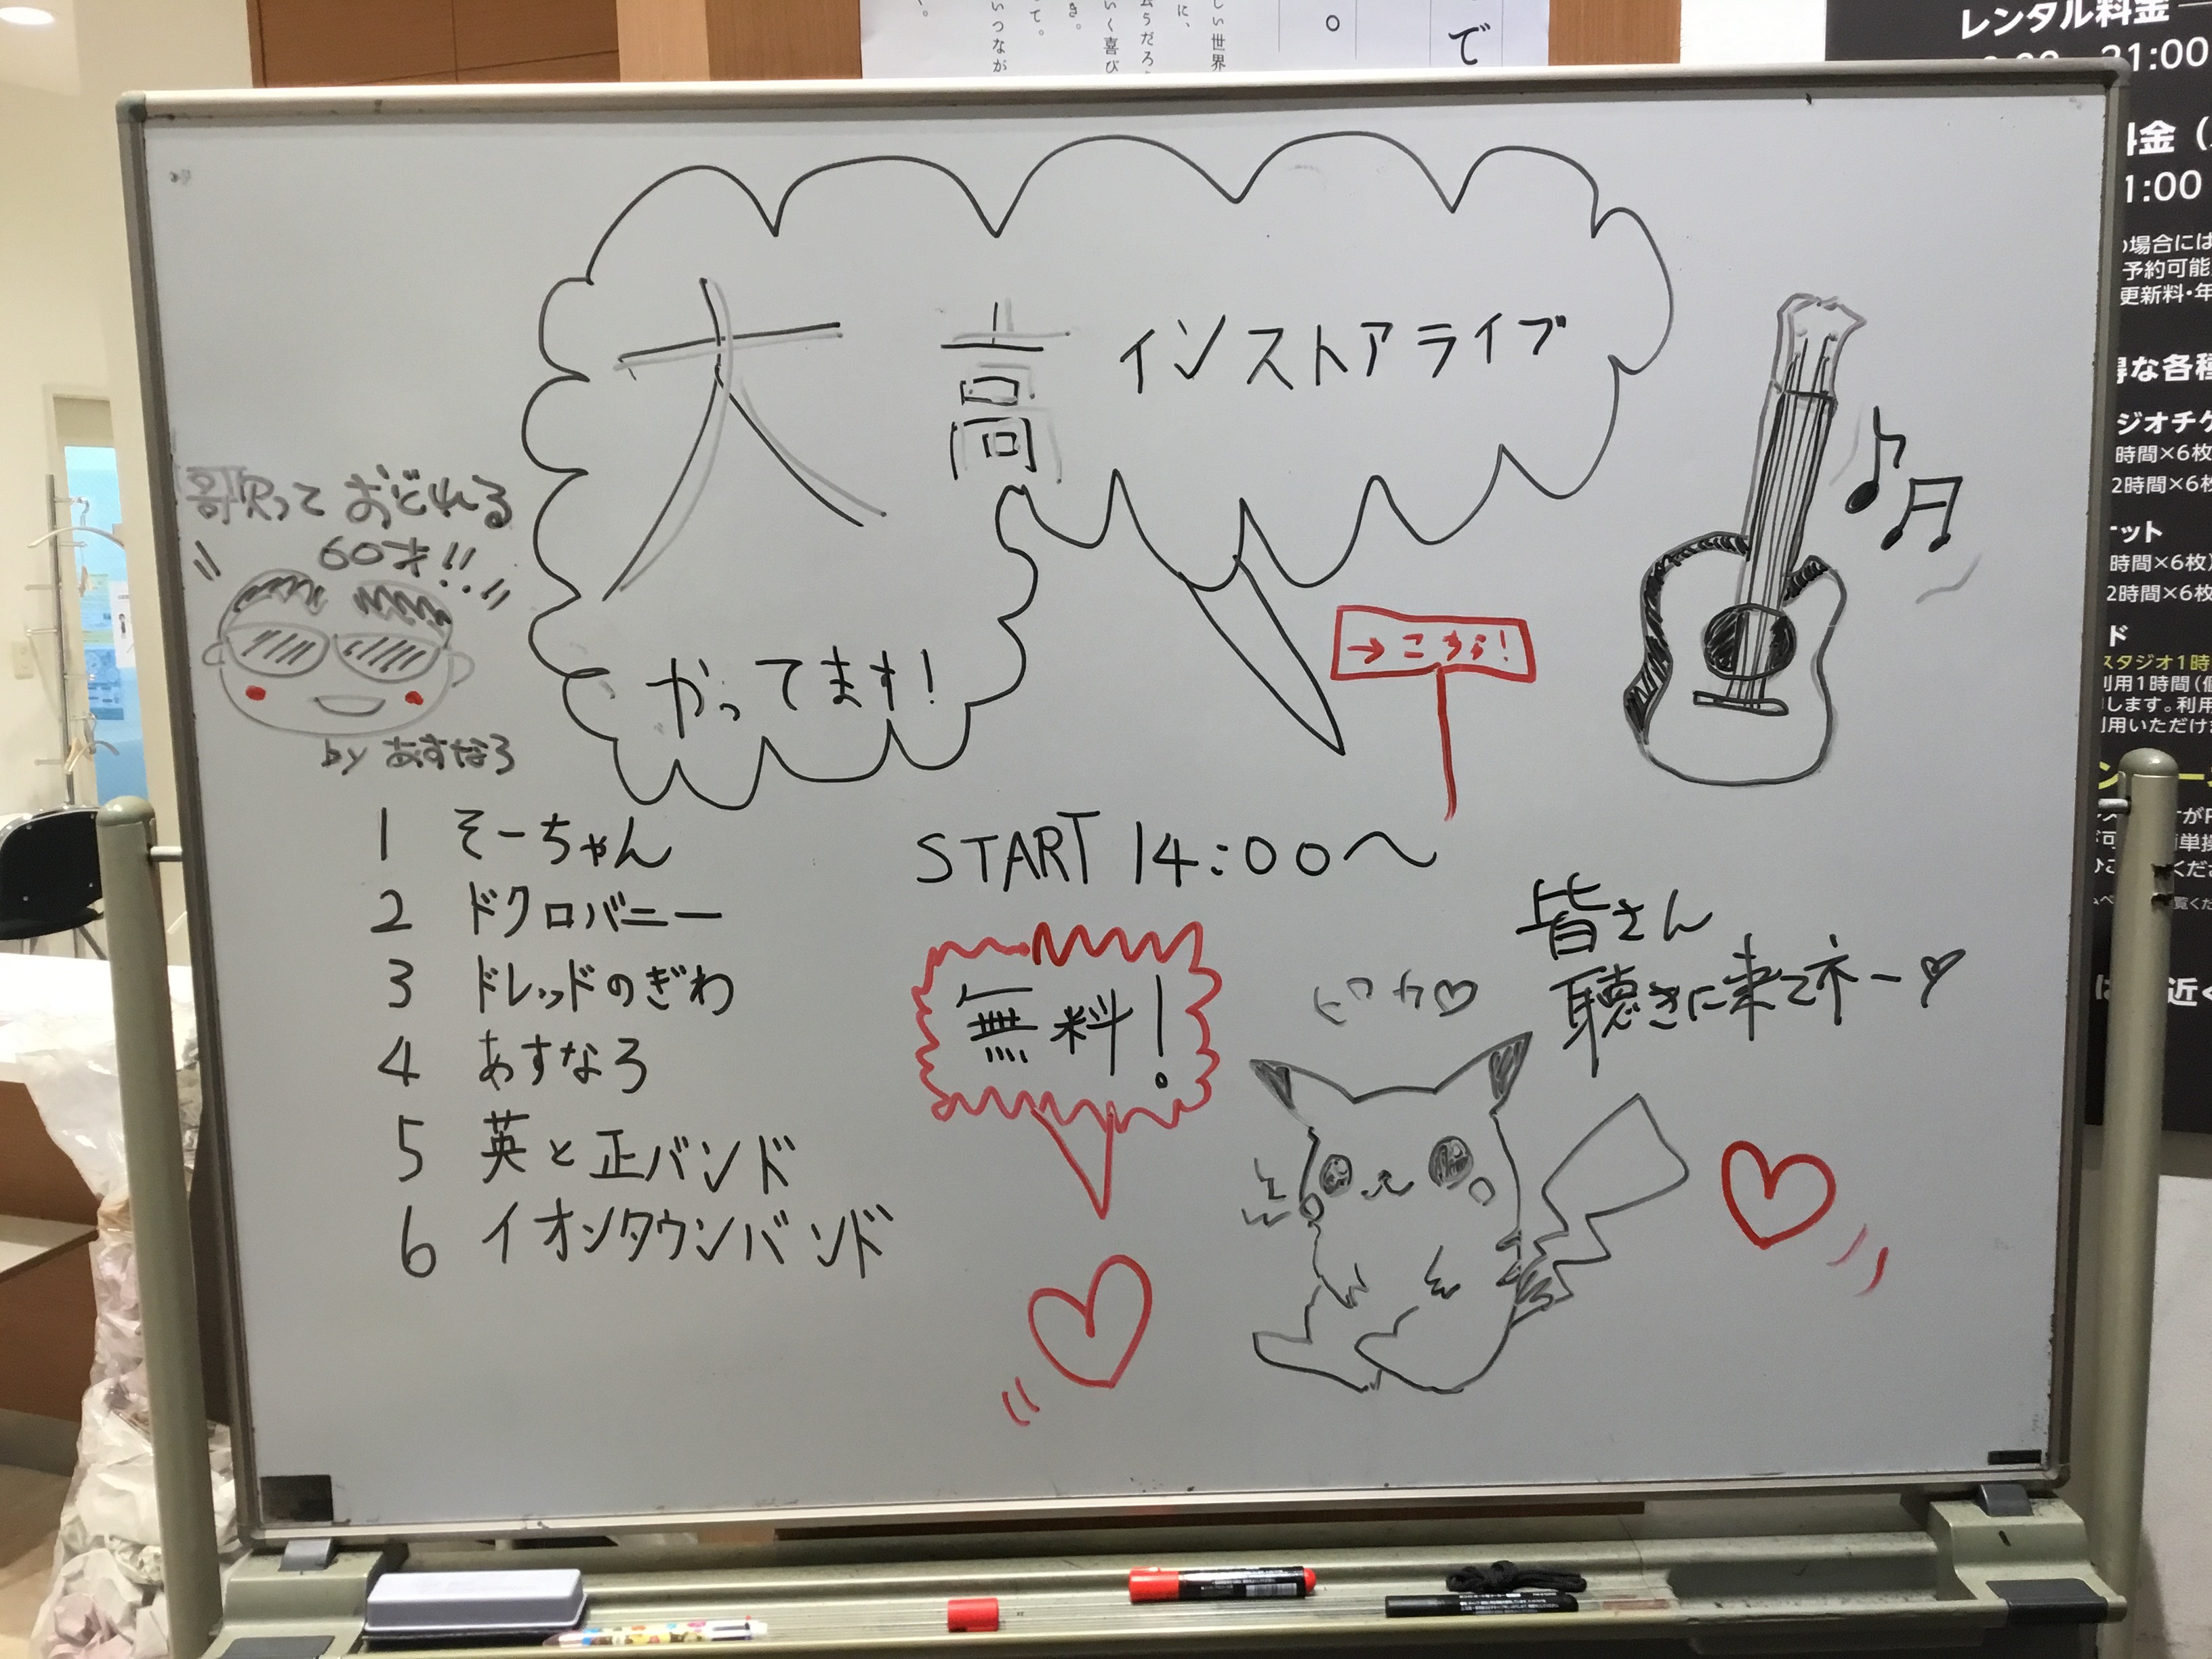 しい世界
に、
いく喜び
き。
て。
いつなが
で
。
レンタル料金
21:00
料金（
1:00
場合には
予約可能
更新料・年
得な各種
ジオチケ
時間×6枚
2時間×6枚
ケット
時間×6枚
2時間×6枚
ド
スタジオ1時
利用1時間（個
します。利用
利用いただけ
近く
大高 インストアライブ
やってます！
→こちら！
歌って おどれる
60才!!
by あすなろ
1 そーちゃん
2 ドクロバニー
3 ドレッドのぎわ
4 あすなろ
5 英と正バンド
6 イオンタウンバンド
START 14:00〜
無料！
ピカ♡
皆さん
聴きに来てネー♡